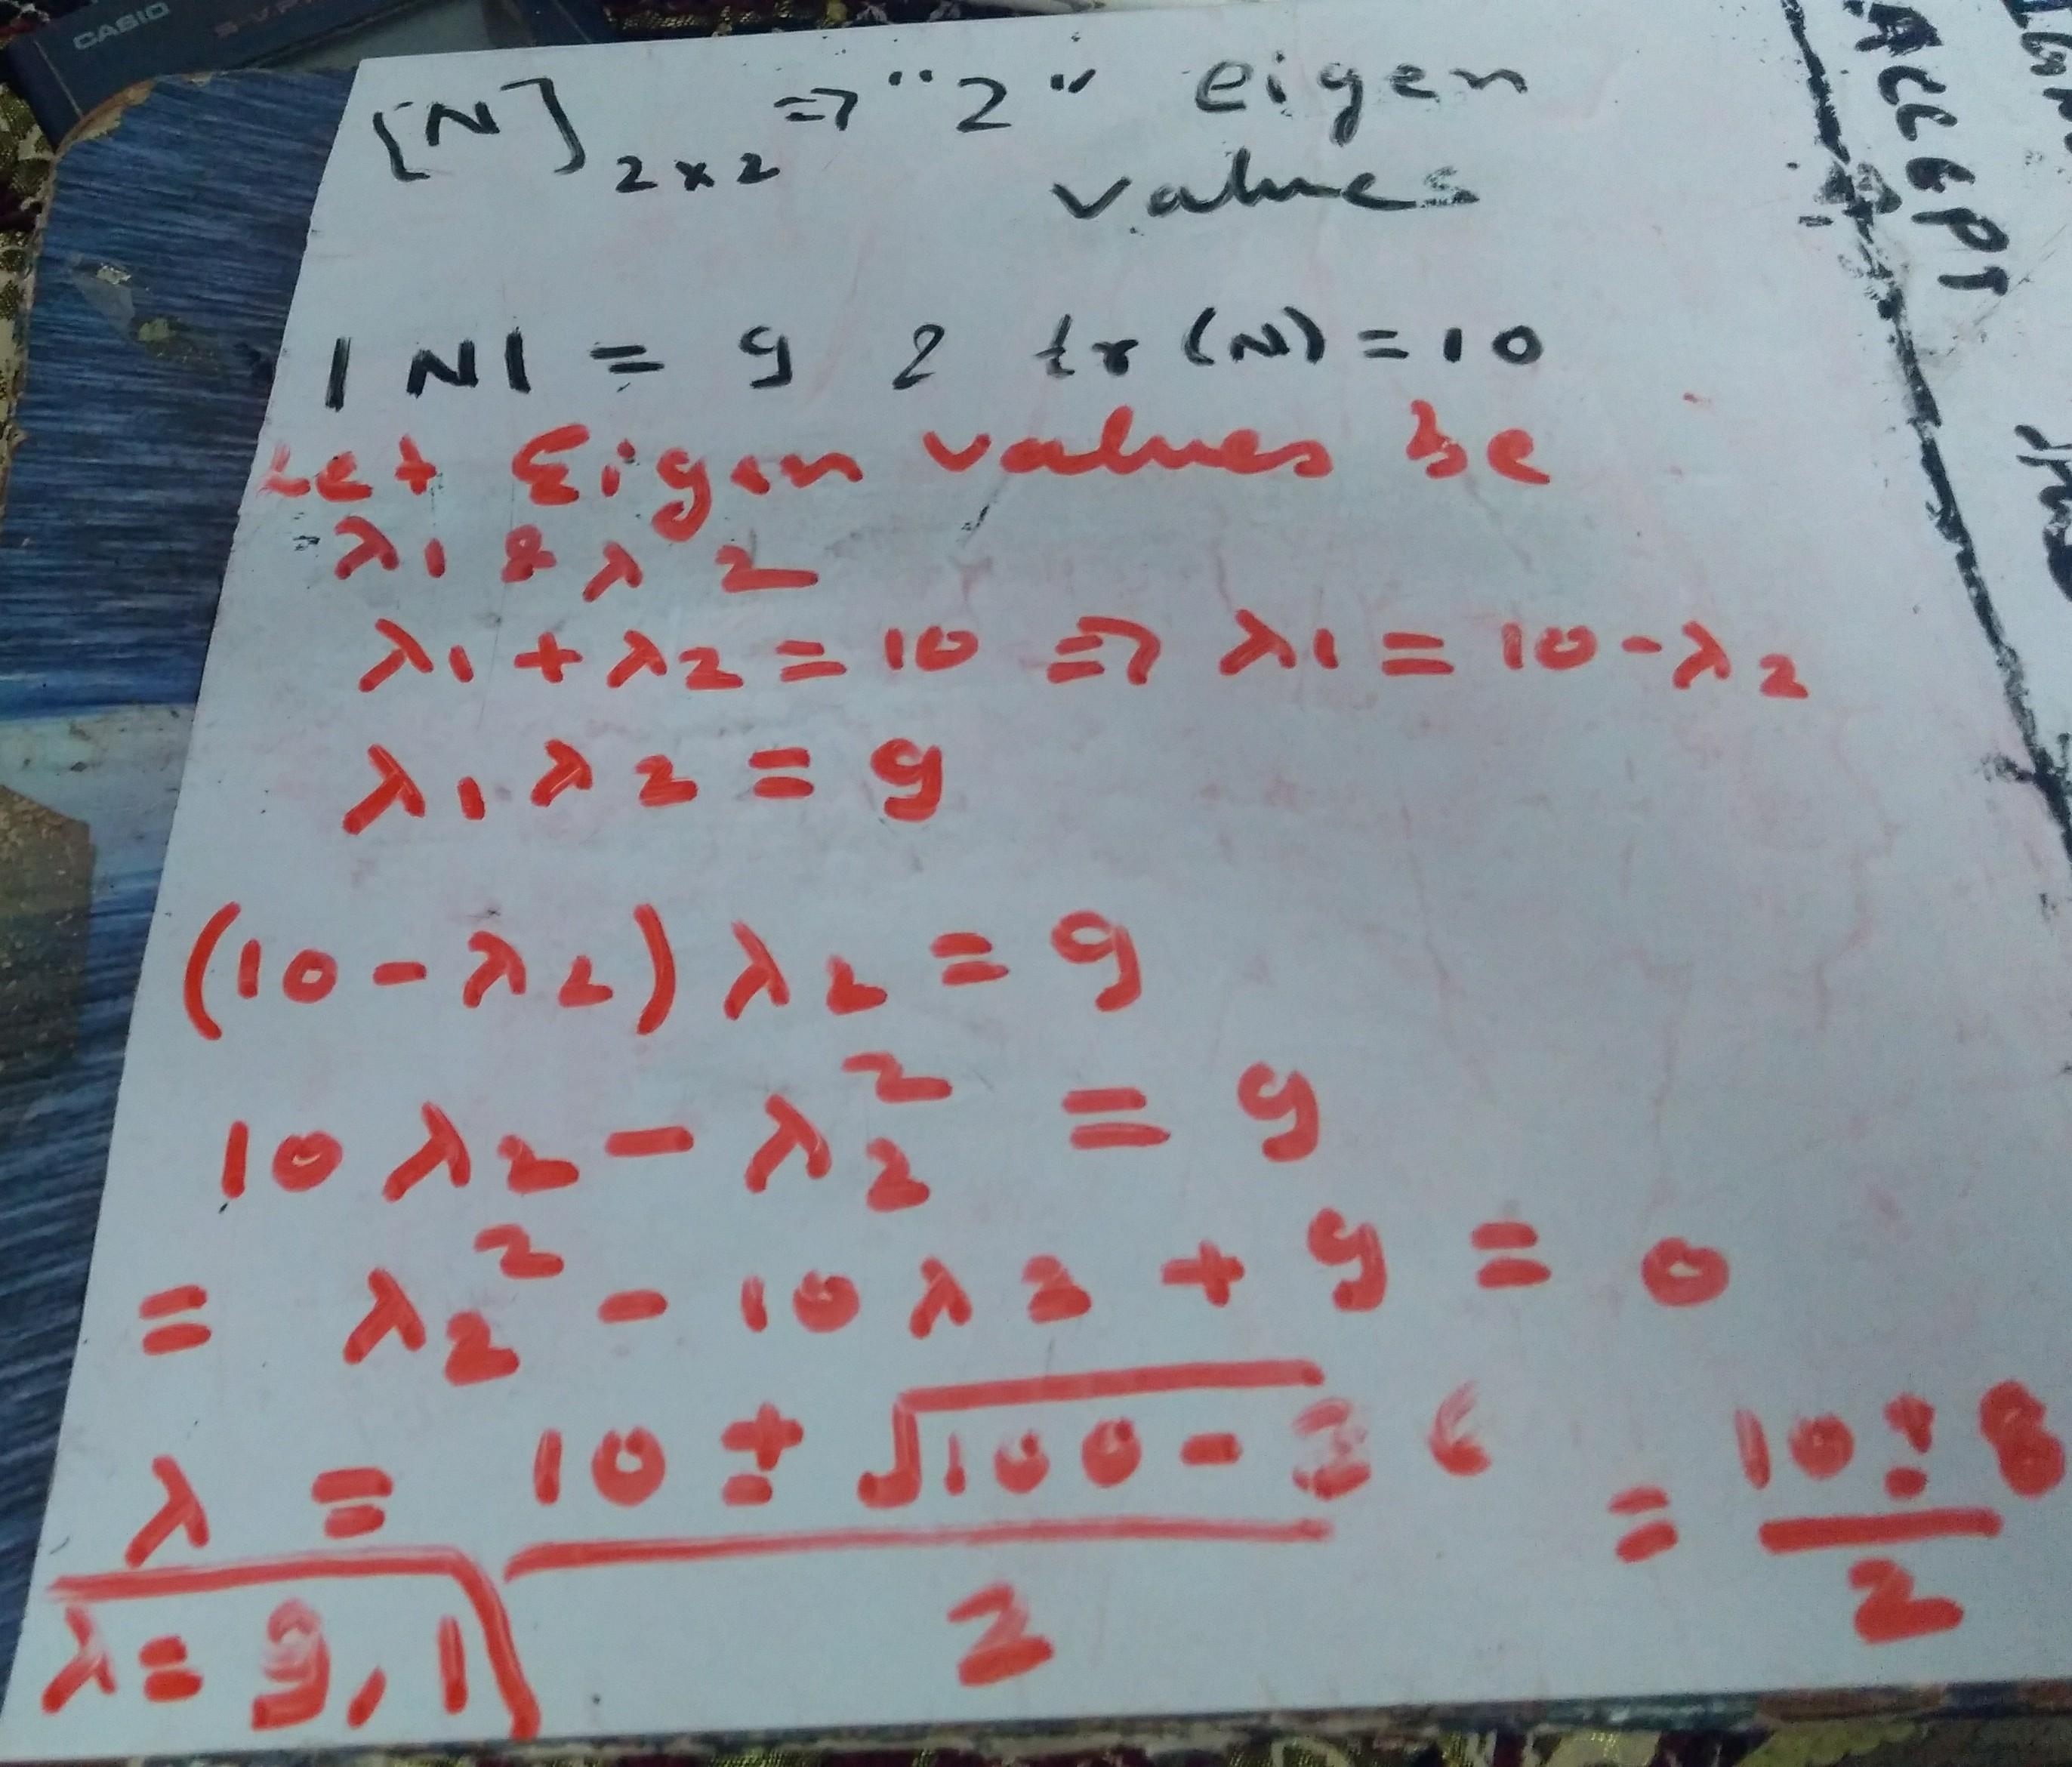 CASIO
[N]2x2 => "2" eigen
values
|N| = 9 & tr(N) = 10
Let Eigen values be
λ1 & λ2
λ1 + λ2 = 10 => λ1 = 10 - λ2
λ1 λ2 = 9
(10 - λ2) λ2 = 9
10 λ2 - λ2² = 9
= λ2² - 10 λ2 + 9 = 0
λ = (10 ± √(100 - 36)) / 2 = (10 ± 8) / 2
λ = 9, 1
ACCEPT